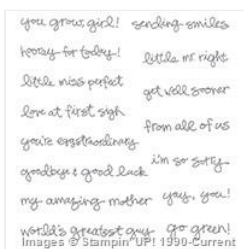 you grow, girl!
sending smiles
hooray for today!
little mr right
little miss perfect
get well sooner
love at first sigh
from all of us
you're extraordinary
i'm so sorry
goodbye & good luck
my amazing mother
yay, you!
world's greatest guy
go green!
Images © Stampin' UP! 1990-Current